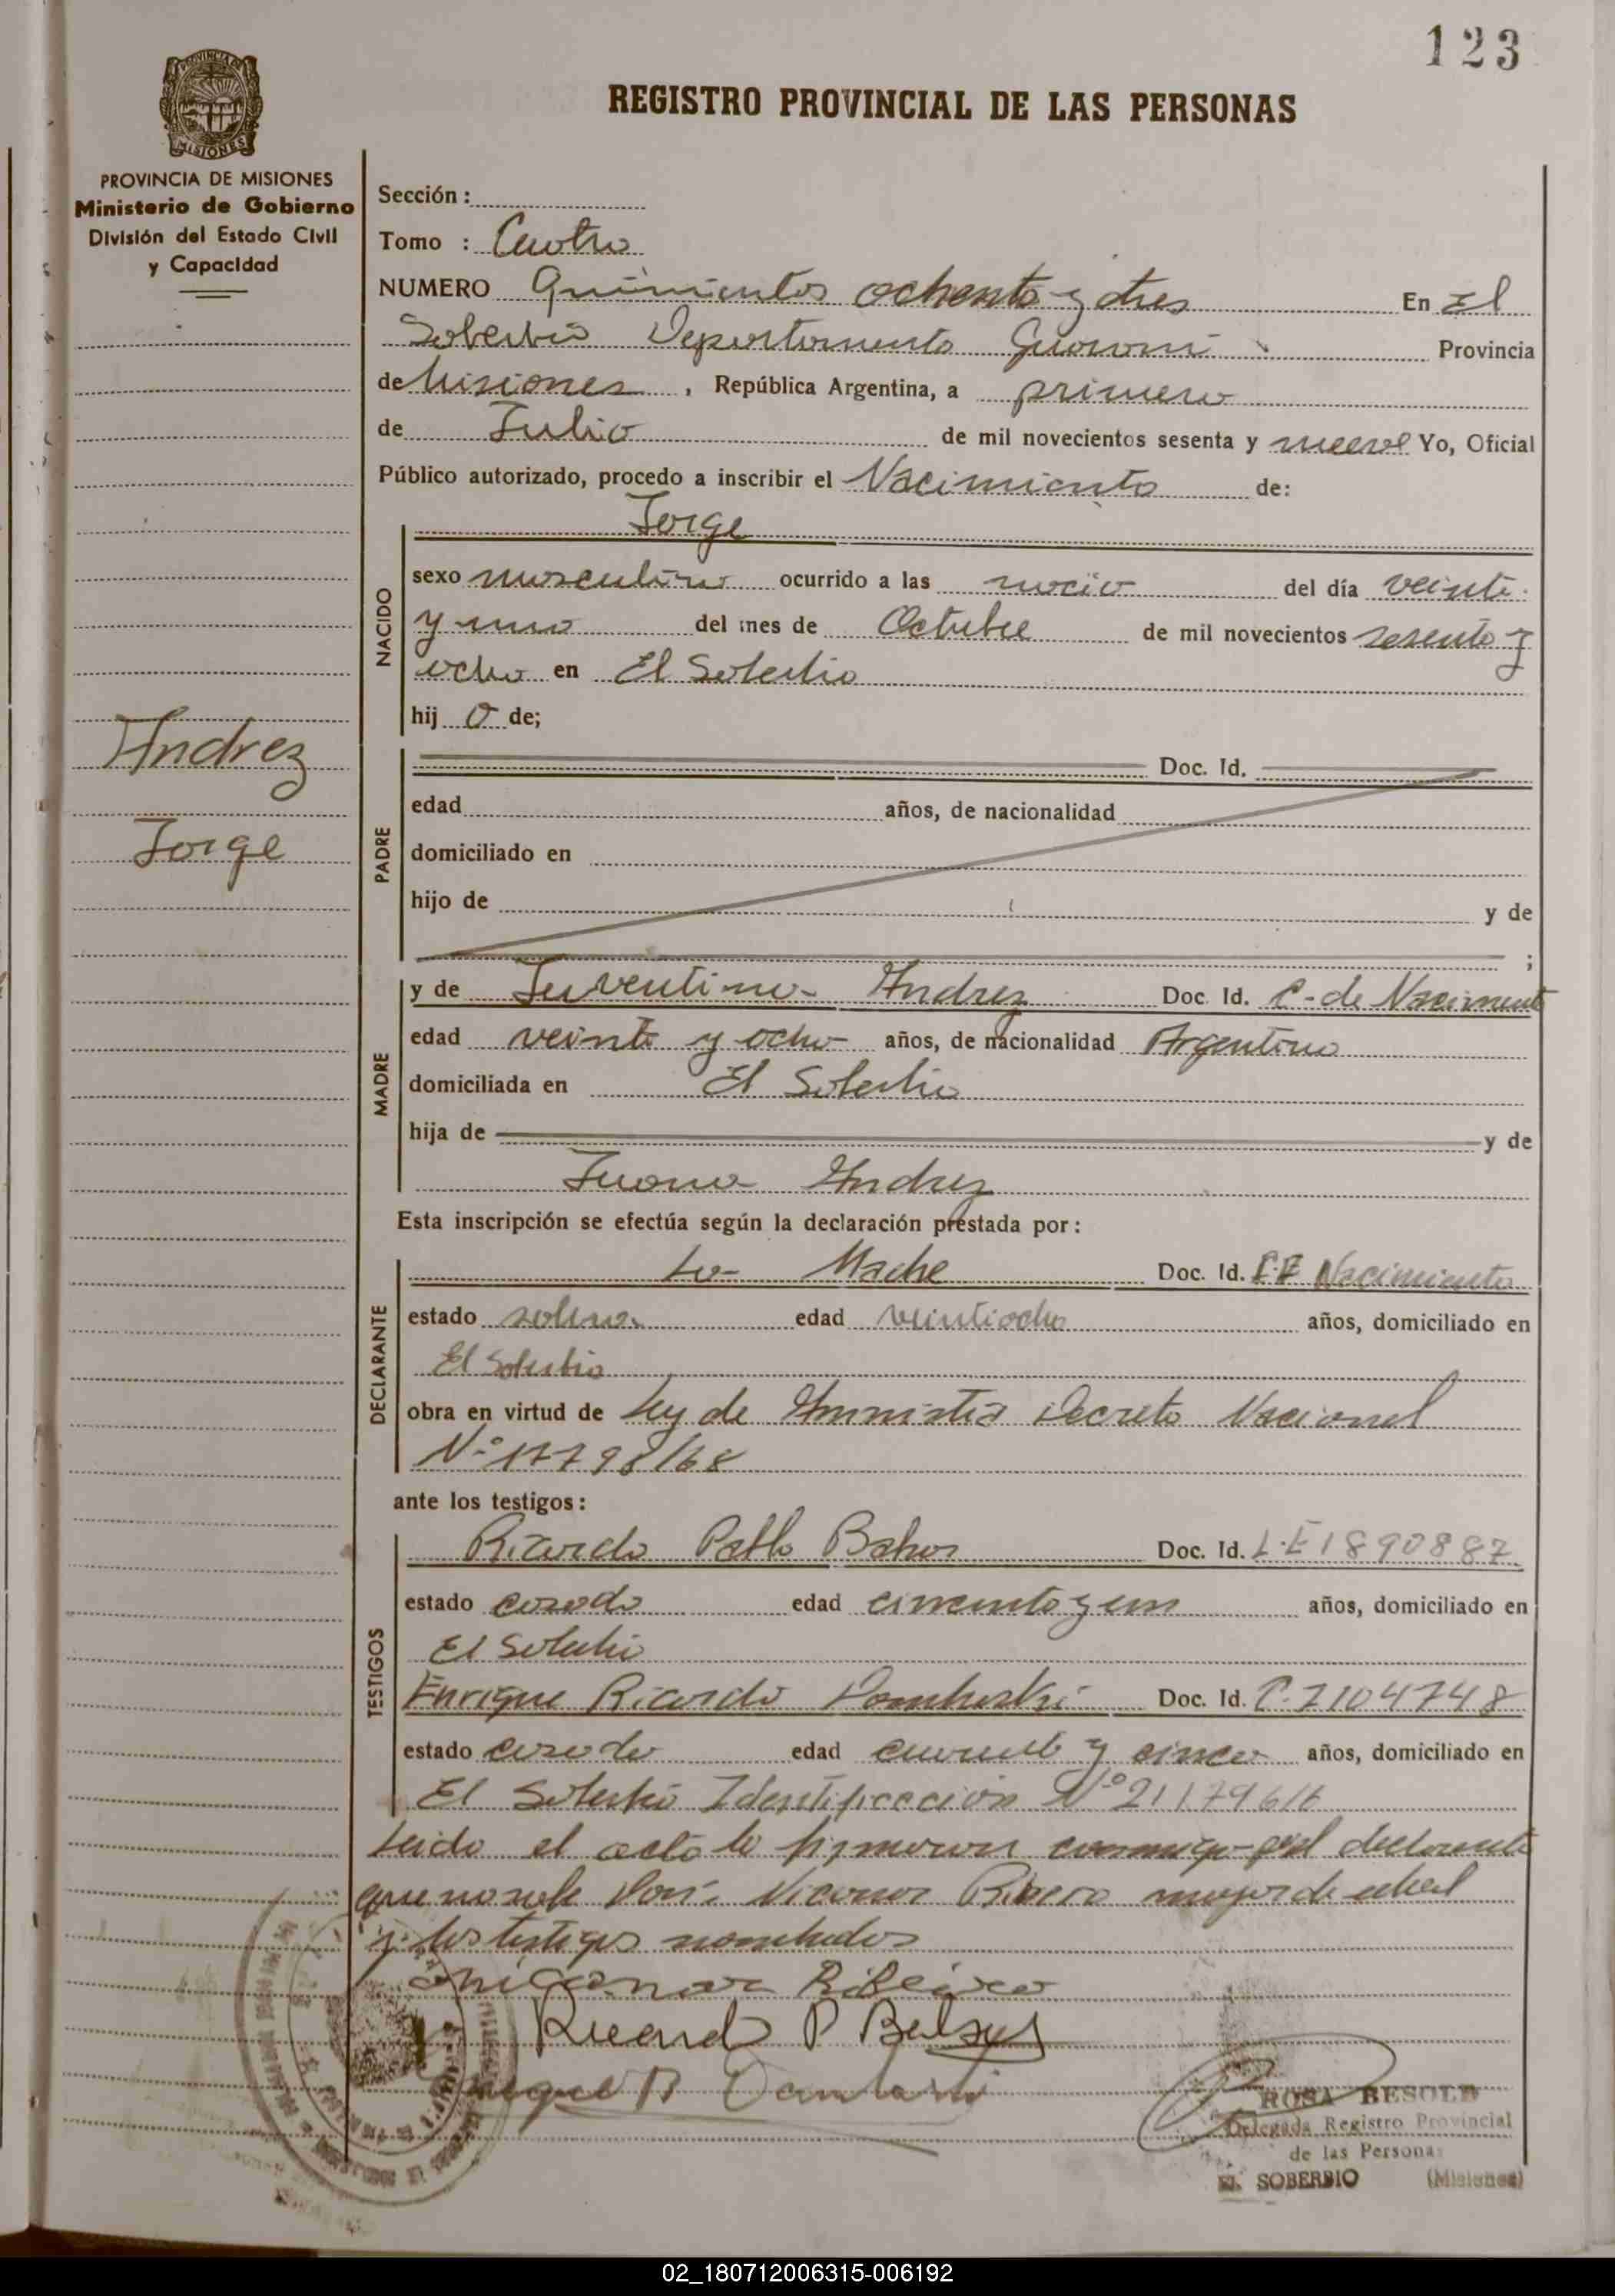 123
REGISTRO PROVINCIAL DE LAS PERSONAS
PROVINCIA DE MISIONES
Ministerio de Gobierno
División del Estado Civil
y Capacidad
Sección :
Tomo : Cuatro
NUMERO Quinientos ochenta y tres En El
Soberbio Departamento Guaraní Provincia
de Misiones , República Argentina, a primero
de Julio de mil novecientos sesenta y nueve Yo, Oficial
Público autorizado, procedo a inscribir el Nacimiento de:
Jorge
NACIDO
sexo masculino ocurrido a las del día veinti
y uno del mes de Octubre de mil novecientos sesenta y
ocho en El Soberbio
hij o de;
Andrez
Jorge
PADRE
Doc. Id.
edad años, de nacionalidad
domiciliado en
hijo de y de
;
MADRE
y de Juventina Andrez Doc. Id. C. de Nacimiento
edad veinte y ocho años, de nacionalidad Argentina
domiciliada en El Soberbio
hija de y de
Juana Andrez
Esta inscripción se efectúa según la declaración prestada por :
DECLARANTE
La Madre Doc. Id. Nacimiento
estado soltera edad veintiocho años, domiciliado en
El Soberbio
obra en virtud de Ley de Amnistia Decreto Nacional
Nº 17798/68
ante los testigos :
TESTIGOS
Ricardo Pablo Doc. Id. L.E 1890887
estado casado edad cincuenta y un años, domiciliado en
El Soberbio
Enrique Ricardo Doc. Id. C. 7104748
estado casado edad cuarenta y cinco años, domiciliado en
El Soberbio Identificación Nº
Leido el acto lo firmaron conmigo declarante
que no sabe Nicanor Ribero mayor de edad
y los testigos nombrados
Ricardo P
ROSA BESOLD
Delegada Registro Provincial
de las Personas
EL SOBERBIO (Misiones)
02_180712006315-006192